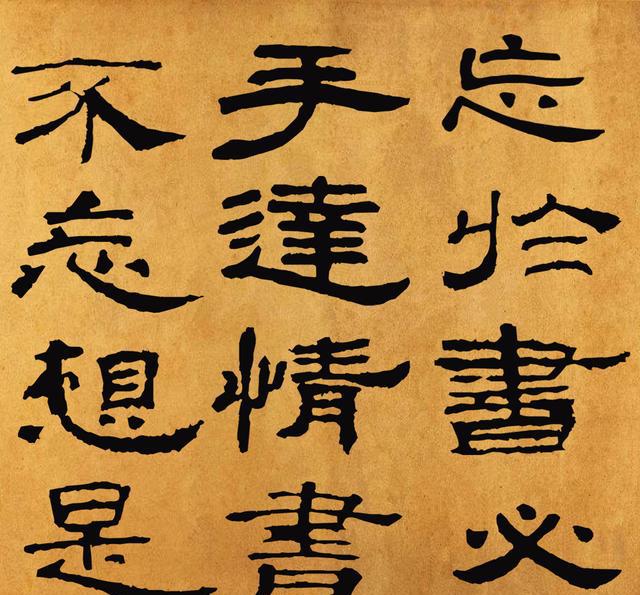 忘於書必
手達情書
不忘想是